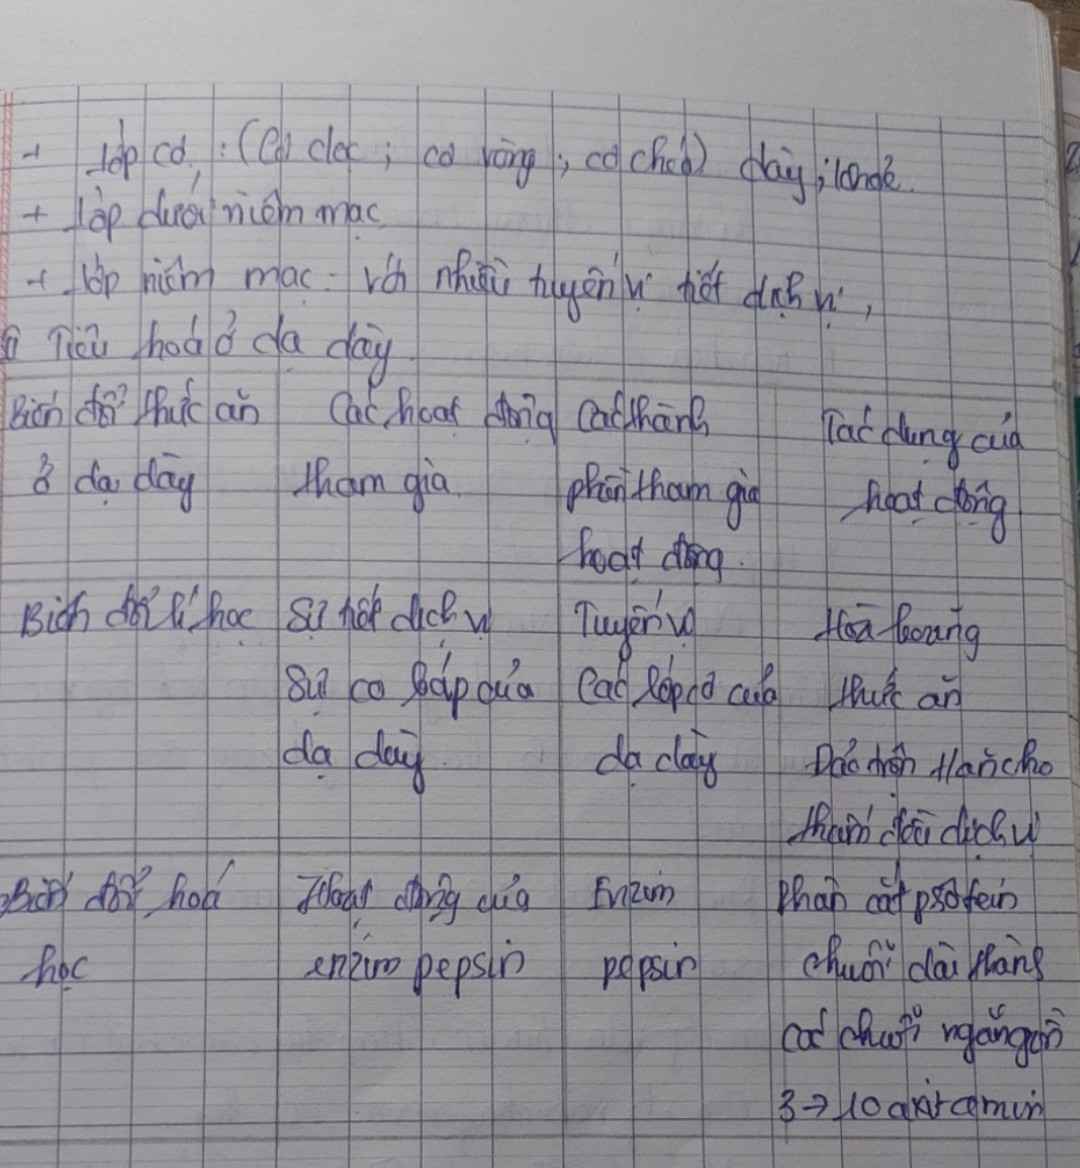 + Lớp cơ: (Cơ dọc; cơ vòng; cơ chéo) dày, khoẻ.
+ lớp dưới niêm mạc
+ lớp niêm mạc - với nhiều tuyến vị tiết dịch vị,
Tiêu hoá ở dạ dày
Biến đổi thức ăn Các hoạt động Các thành Tác dụng của
ở dạ dày tham gia phần tham gia hoạt động
hoạt động.
Biến đổi lí học Sự tiết dịch vị Tuyến vị Hoà loãng
Sự co bóp của Các lớp cơ của thức ăn
dạ dày dạ dày Đảo trộn t/ăn cho
thấm đều dịch vị
Biến đổi hoá Hoạt động của Enzim Phân cắt protein
học enzim pepsin pepsin chuỗi dài thành
các chuỗi ngắn gồm
3 → 10 axit amin